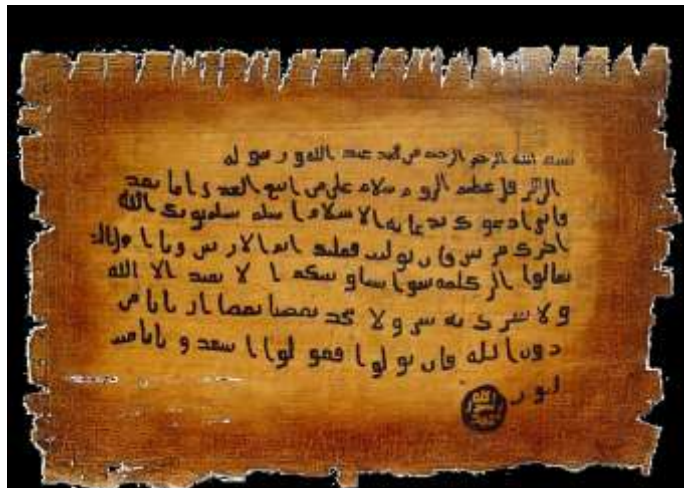 بسم الله الرحمن الرحيم من محمد عبد الله و رسوله
الى هرقل عظيم الروم سلام على من اتبع الهدى اما بعد
فاني ادعوك بدعاية الاسلام اسلم تسلم يوتك الله
اجرك مرتين فان توليت فعليك اثم الاريسين ويا اهل الك
تعالوا الى كلمة سوا بيننا وبينكم الا نعبد الا الله
ولا نشرك به شيا ولا يتخذ بعضنا بعضا اربابا من
دون الله فان تولوا فقولوا اشهدوا بانا مسـ
لمون
الله
رسول
محمد